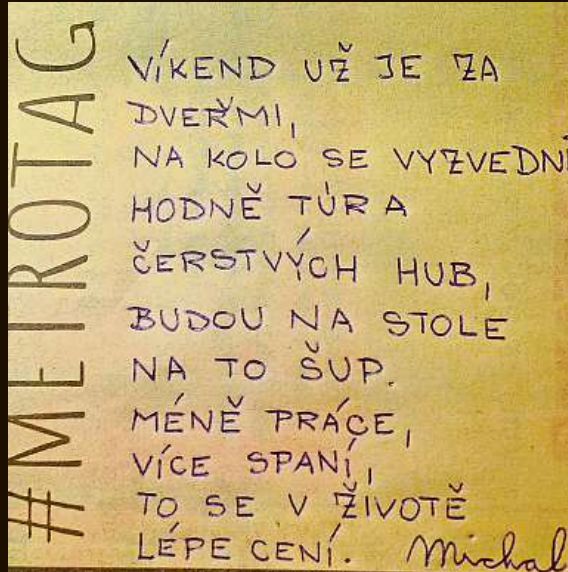 #METROTAG
VÍKEND UŽ JE ZA
DVEŘMI,
NA KOLO SE VYZVEDNI
HODNĚ TÚR A
ČERSTVÝCH HUB,
BUDOU NA STOLE
NA TO ŠUP.
MÉNĚ PRÁCE,
VÍCE SPANÍ,
TO SE V ŽIVOTĚ
LÉPE CENÍ. Michal